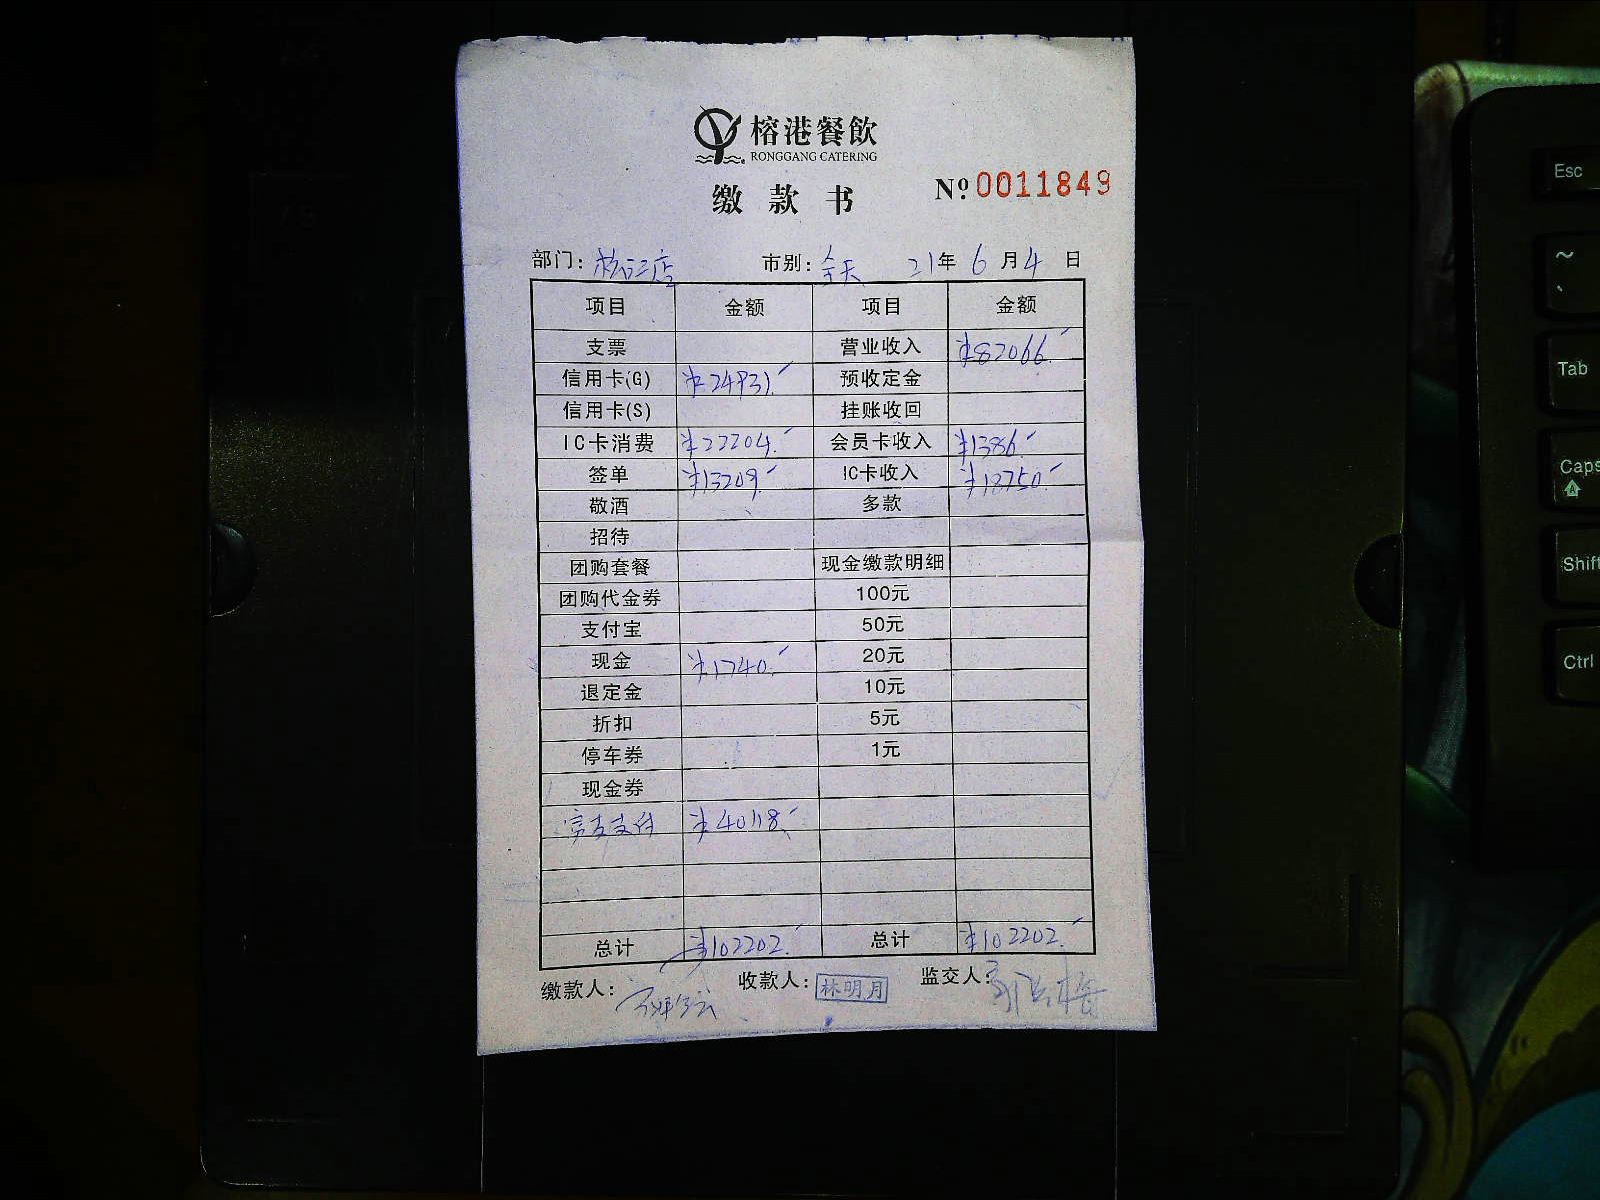 榕港餐飲
RONGGANG CATERING
缴款书 Nº 0011849
部门: 松江店 市别: 全天 21年 6月 4日
项目 金额 项目 金额
支票 营业收入 ¥82066.
信用卡(G) ¥24931. 预收定金
信用卡(S) 挂账收回
IC卡消费 ¥22204. 会员卡收入 ¥1386.
签单 ¥13209. IC卡收入 ¥18750
敬酒 多款
招待
团购套餐 现金缴款明细
团购代金券 100元
支付宝 50元
现金 ¥1740. 20元
退定金 10元
折扣 5元
停车券 1元
现金券
富友支付 ¥40118.
总计 ¥102202. 总计 ¥102202.
缴款人: 收款人: 林明月 监交人:
Esc
~
Tab
Caps
Shift
Ctrl